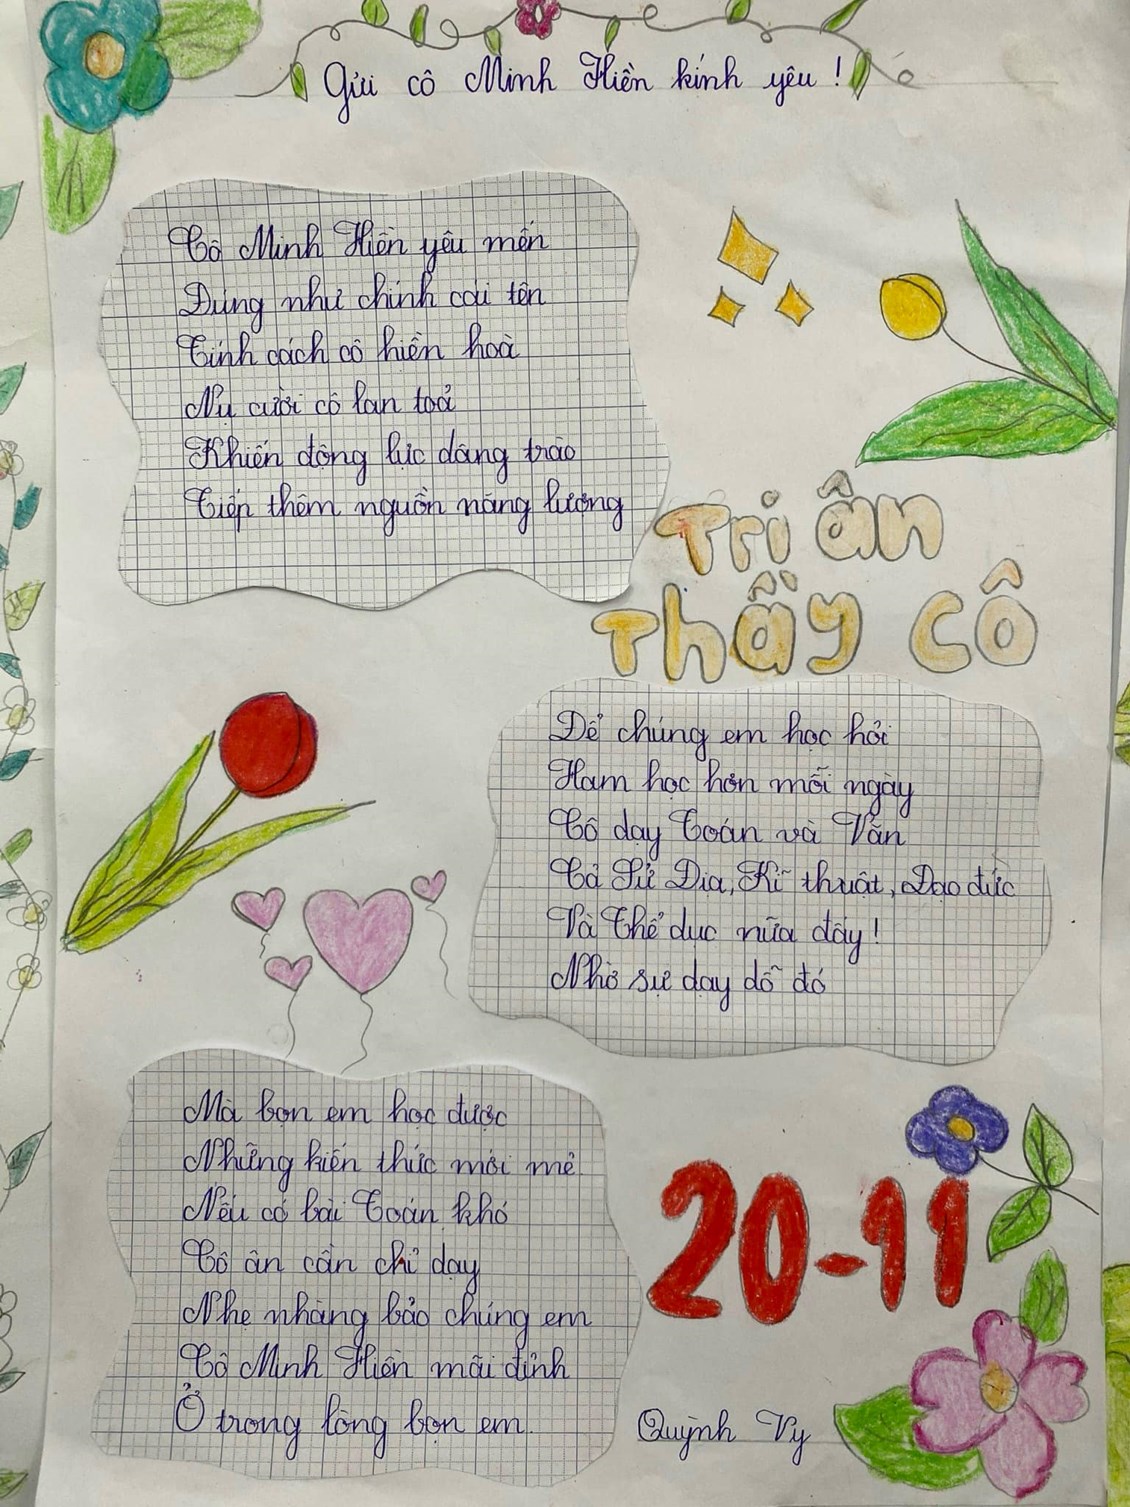 Gửi cô Minh Hiền kính yêu !
Cô Minh Hiền yêu mến
Đúng như chính cái tên
Tính cách cô hiền hoà
Nụ cười cô lan toả
Khiến động lực dâng trào
Tiếp thêm nguồn năng lượng
Tri ân
thầy cô
Để chúng em học hỏi
Ham học hơn mỗi ngày
Cô dạy Toán và Văn
Cả Sử Địa, Kĩ thuật, Đạo đức
Và Thể dục nữa đấy !
Nhờ sự dạy dỗ đó
Mà bọn em học được
Những kiến thức mới mẻ
Nếu có bài Toán khó
Cô ân cần chỉ dạy
Nhẹ nhàng bảo chúng em
Cô Minh Hiền mãi đỉnh
Ở trong lòng bọn em.
20-11
Quỳnh Vy